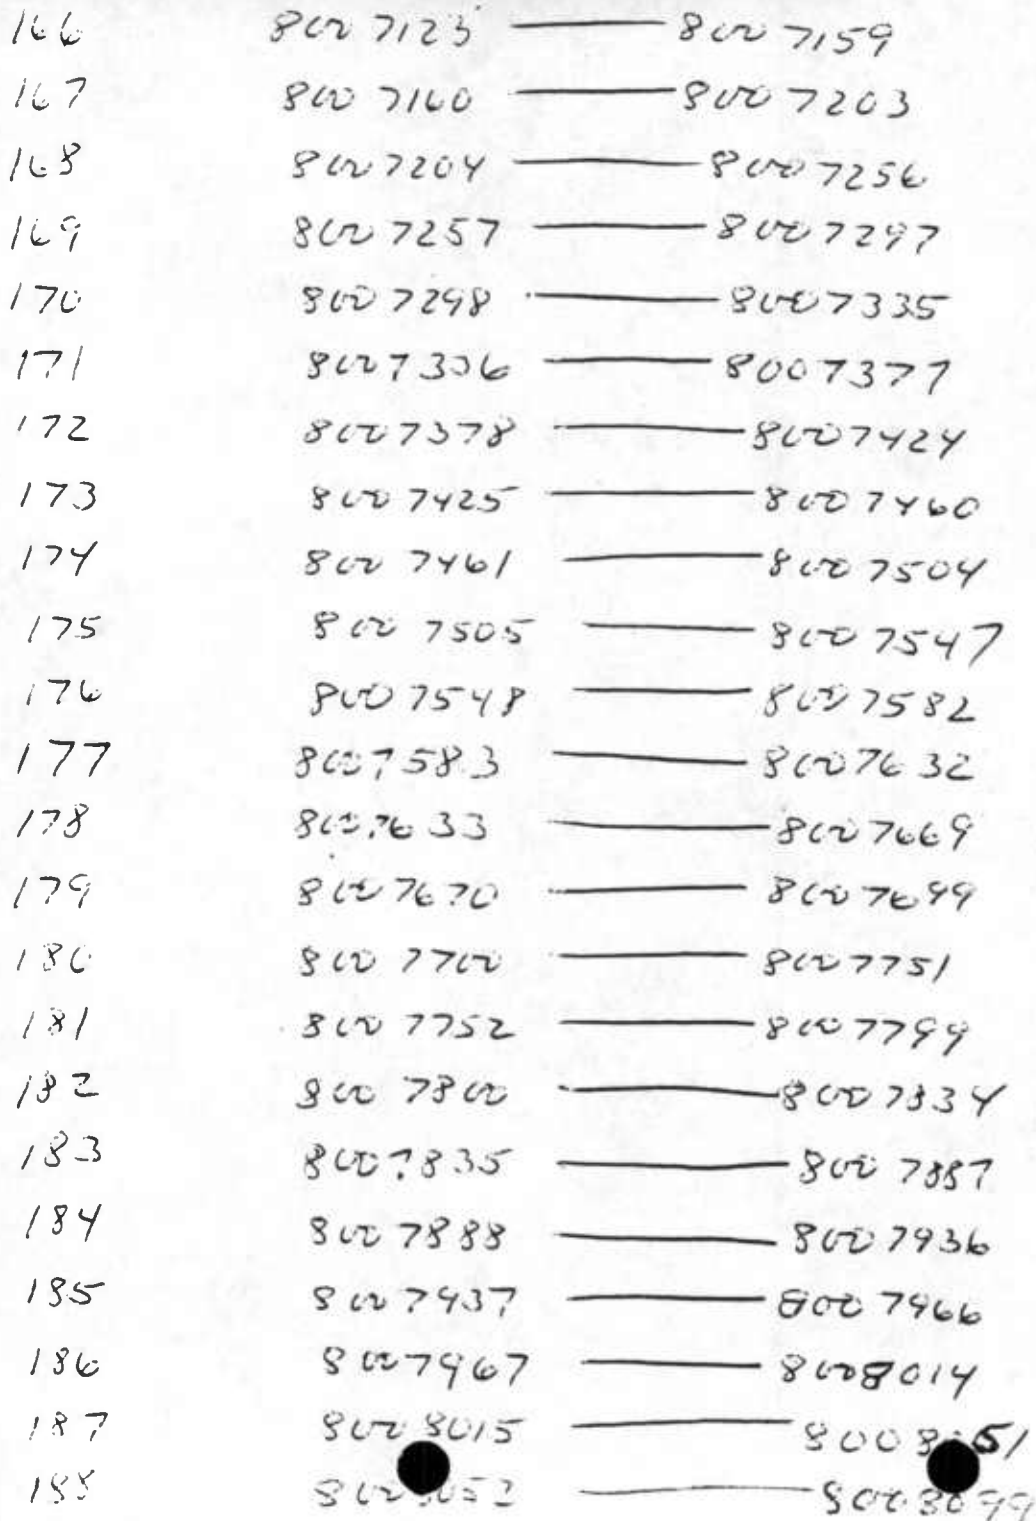 166 8007123 — 8007159
167 8007160 — 8007203
168 8007204 — 8007256
169 8007257 — 8007297
170 8007298 — 8007335
171 8007336 — 8007377
172 8007378 — 8007424
173 8007425 — 8007460
174 8007461 — 8007504
175 8007505 — 8007547
176 8007548 — 8007582
177 8007583 — 8007632
178 8007633 — 8007669
179 8007670 — 8007699
180 8007700 — 8007751
181 8007752 — 8007799
182 8007800 — 8007834
183 8007835 — 8007887
184 8007888 — 8007936
185 8007937 — 8007966
186 8007967 — 8008014
187 8008015 — 8008051
188 8008052 — 8008099